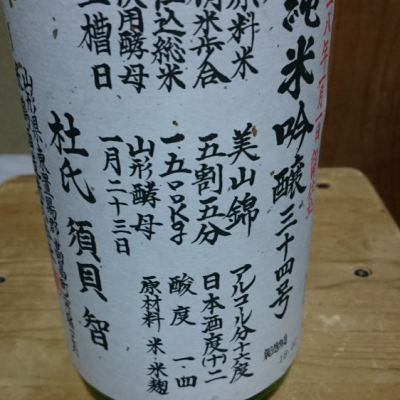 純米吟醸三十四号
原料米 美山錦
精米歩合 五割五分
仕込総米 一・五〇〇kg
使用酵母 山形酵母
上槽日 一月二十三日
杜氏 須貝 智
アルコール分十六度
日本酒度(十)二
酸度 一・四
原材料 米・米麹